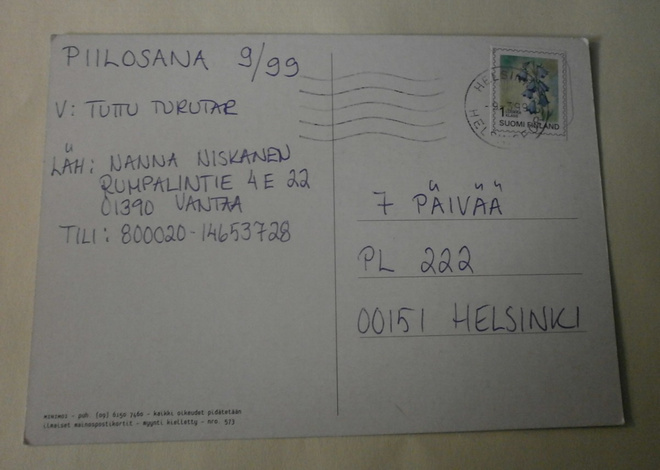 PIILOSANA 9/99
V: TUTTU TURUTAR
LÄH: NANNA NISKANEN
RUMPALINTIE 4 E 22
01390 VANTAA
TILI: 800020-14653728
HELSIN
1
SUOMI FINLAND
7 PÄIVÄÄ
PL 222
00151 HELSINKI
- puh: (09) 6150 7460 - kaikki oikeudet pidätetään
ilmaiset mainospostikortit - myynti kielletty - nro. 573